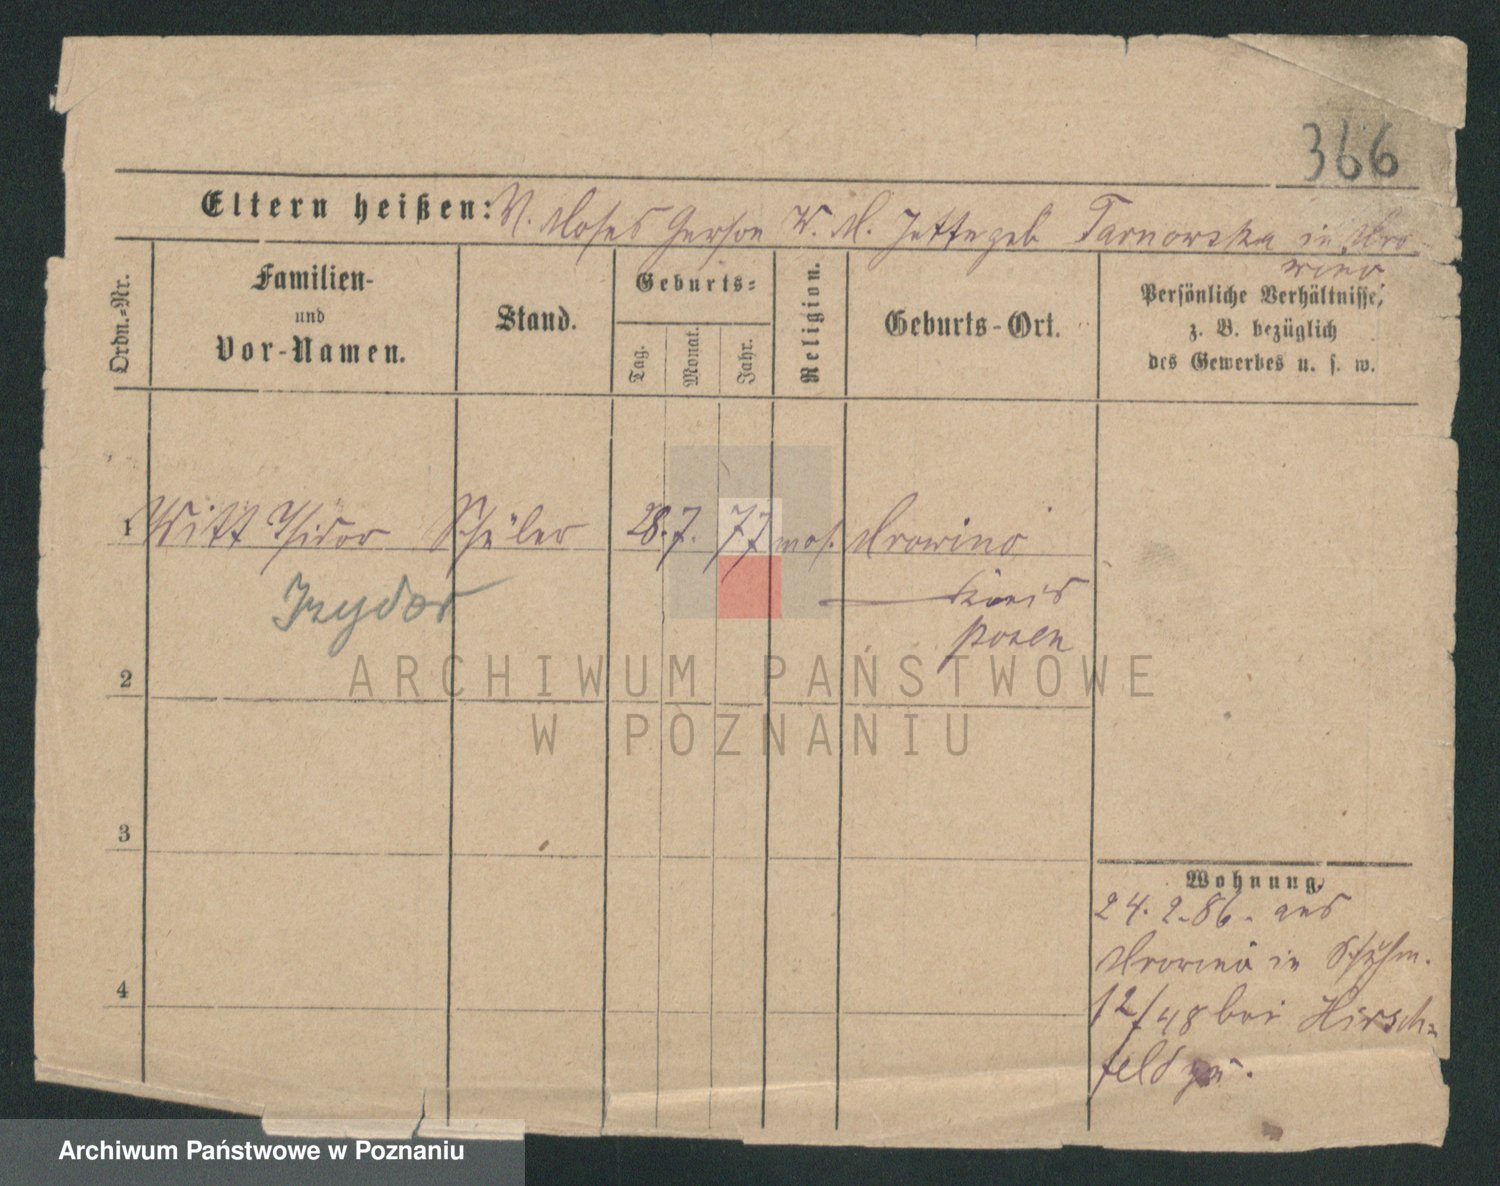 366
Eltern heißen: V. Moses Gerson W. M. Jette geb Tarnowska in Mro-
wino
Ordn.-Nr.
Familien-
und
Vor-Namen.
Stand.
Geburts-
Tag.
Monat.
Jahr.
Religion.
Geburts-Ort.
Persönliche Verhältnisse,
z. B. bezüglich
des Gewerbes u. s. w.
1 Witt Isidor Schüler 28. 7. 77 mos. Mrowino
Izydor
Kreis
Posen
2
3
4
Wohnung.
24. 2. 86. aus
Mrowino in
12/48 bei Hirsch-
feld
ARCHIWUM PAŃSTWOWE
W POZNANIU
Archiwum Państwowe w Poznaniu